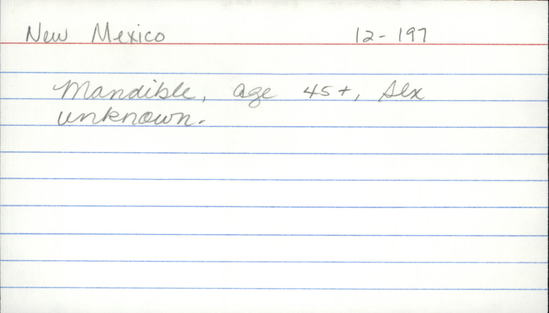 New Mexico 12-197
Mandible, age 45+, Sex
unknown.